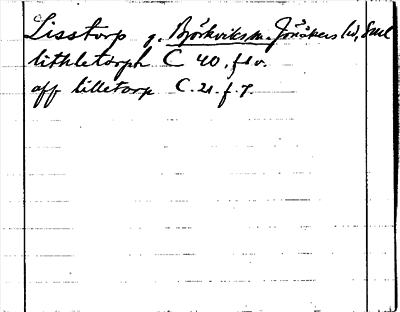 Lisstorp g. Björkviks sn. Jönåkers hd, Sml
lithletorph C 40, f 1 v.
aff lilletorp C. 21. f. 7.